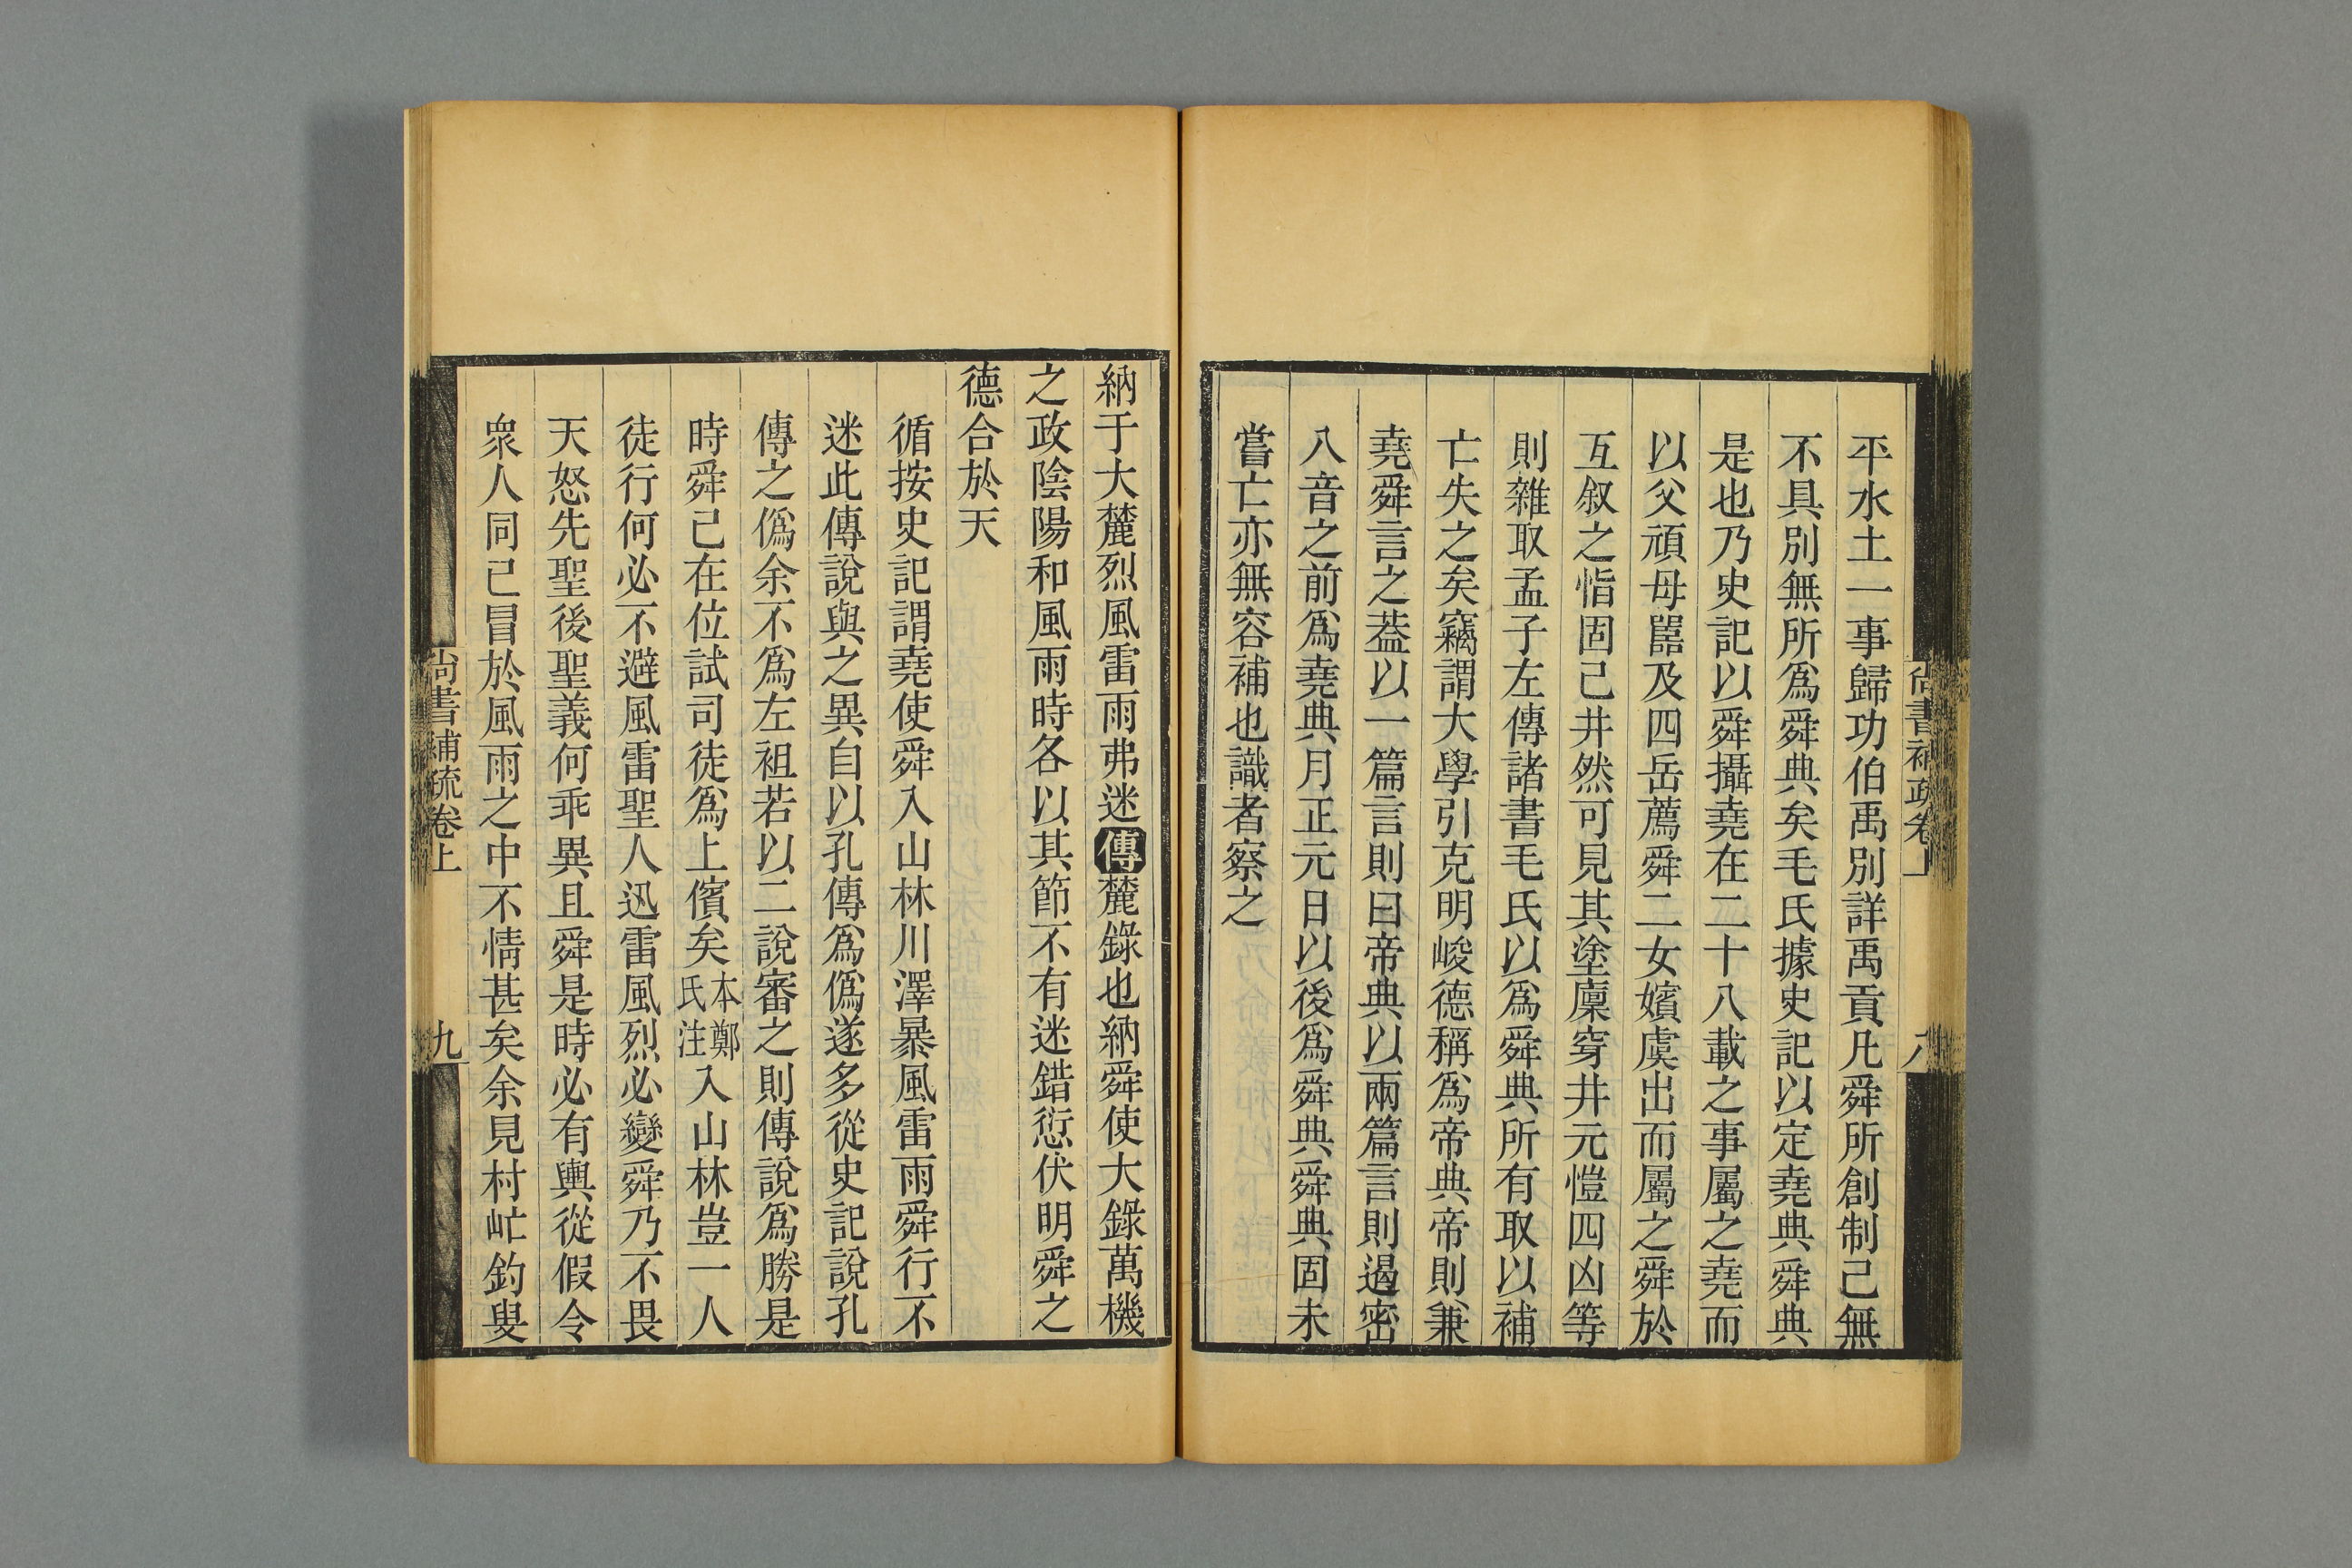 尚書補疏卷上
八
平水土一事歸功伯禹別詳禹貢凡舜所創制已無
不具別無所爲舜典矣毛氏據史記以定堯典舜典
是也乃史記以舜攝堯在二十八載之事屬之堯而
以父頑母嚚及四岳薦舜二女嬪虞出而屬之舜於
互敘之恉固已井然可見其塗廩穿井元愷四凶等
則雜取孟子左傳諸書毛氏以爲舜典所有取以補
亡失之矣竊謂大學引克明峻德稱爲帝典帝則兼
堯舜言之葢以一篇言則曰帝典以兩篇言則遏密
八音之前爲堯典月正元日以後爲舜典舜典固未
嘗亡亦無容補也識者察之
納于大麓烈風雷雨弗迷傳麓錄也納舜使大錄萬機
之政陰陽和風雨時各以其節不有迷錯愆伏明舜之
德合於天
循按史記謂堯使舜入山林川澤暴風雷雨舜行不
迷此傳說與之異自以孔傳爲僞遂多從史記說孔
傳之僞余不爲左袒若以二說審之則傳說爲勝是
時舜已在位試司徒爲上儐矣本鄭氏注入山林豈一人
徒行何必不避風雷聖人迅雷風烈必變舜乃不畏
天怒先聖後聖義何乖異且舜是時必有輿從假令
衆人同已冒於風雨之中不情甚矣余見村甿釣叟
尚書補疏卷上
九